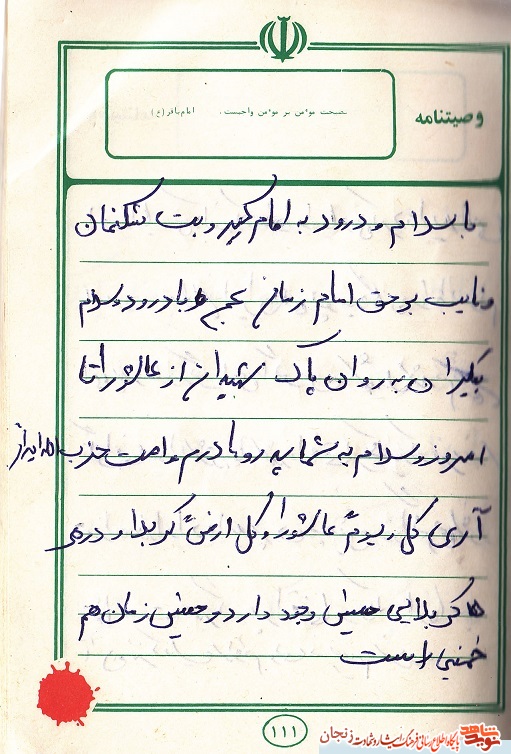 وصیتنامه
نصیحت موءمن بر موءمن واجبست . امام باقر (ع)
با سلام و درود به امام کبیر و بت شکنمان
و نایب بر حق امام زمان عج و با درود و سلام
بیکران به روان پاک شهیدان از عاشورا تا
امروز و سلام به شما پدر و مادرم و امت حزب الله ایران
آری کل یوم عاشورا و کل ارض کربلا و در هر
کربلایی حسینی وجود دارد و حسین زمان هم
خمینی است
۱۱۱
نوید شاهد
پایگاه اطلاع رسانی فرهنگ ایثار و شهادت زنجان